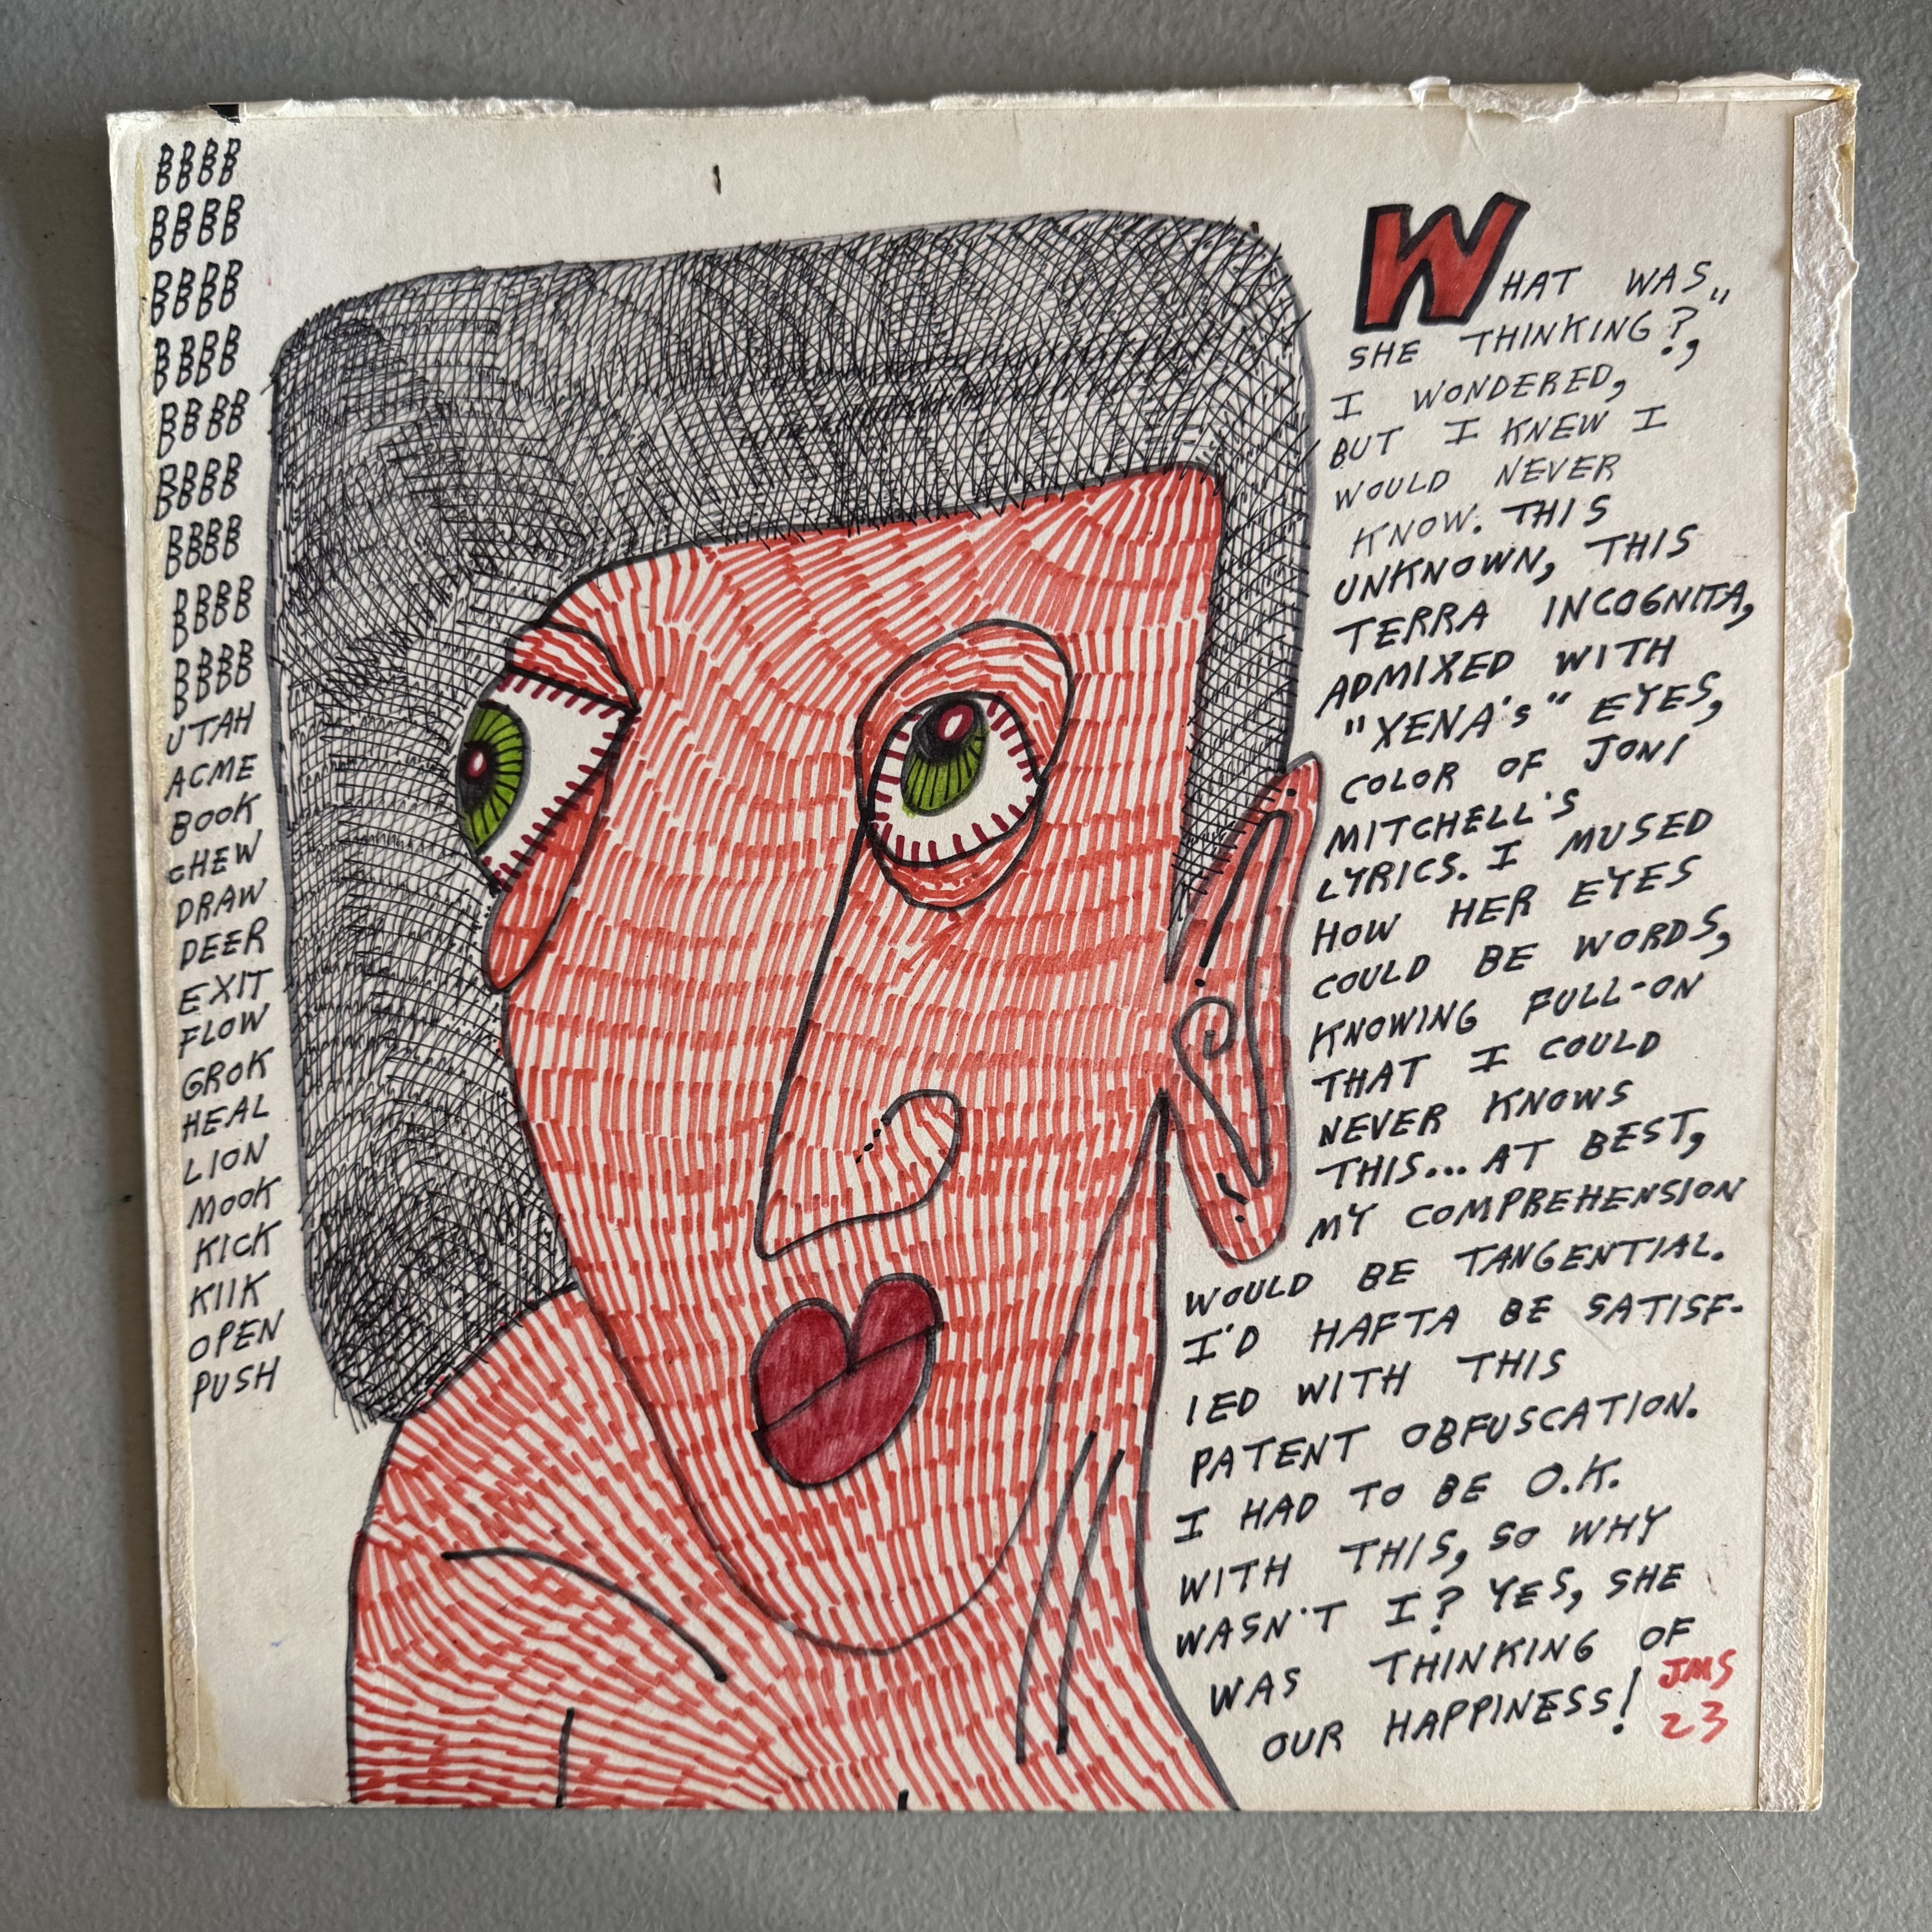 BBBB
BBBB
BBBB
BBBB
BBBB
BBBB
BBBB
BBBB
BBBB
UTAH
ACME
BOOK
CHEW
DRAW
DEER
EXIT
FLOW
GROK
HEAL
LION
MOOK
KICK
KIIK
OPEN
PUSH
WHAT WAS,,
SHE THINKING?,
I WONDERED,
BUT I KNEW I
WOULD NEVER
KNOW. THIS
UNKNOWN, THIS
TERRA INCOGNITA,
ADMIXED WITH
"XENA's" EYES,
COLOR OF JONI
MITCHELL'S
LYRICS. I MUSED
HOW HER EYES
COULD BE WORDS,
KNOWING FULL-ON
THAT I COULD
NEVER KNOWS
THIS... AT BEST,
MY COMPREHENSION
WOULD BE TANGENTIAL.
I'D HAFTA BE SATISF-
IED WITH THIS
PATENT OBFUSCATION.
I HAD TO BE O.K.
WITH THIS, SO WHY
WASN'T I? YES, SHE
WAS THINKING OF
OUR HAPPINESS!
JMS
23